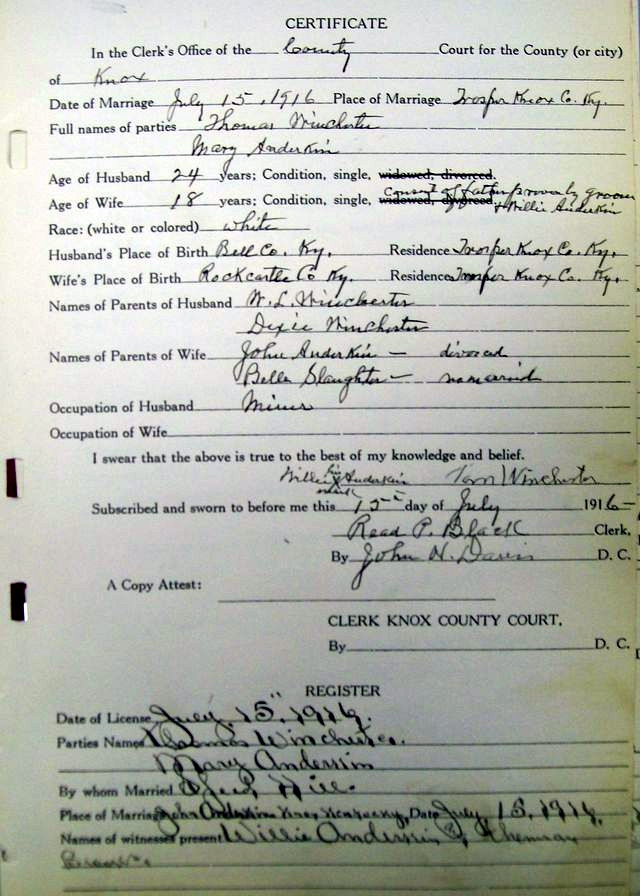 CERTIFICATE
In the Clerk's Office of the County Court for the County (or city)
of Knox
Date of Marriage July 15, 1916 Place of Marriage Trosper Knox Co. Ky.
Full names of parties Thomas Winchester
Mary Anderkin
Age of Husband 24 years; Condition, single, widowed, divorced.
Consent of father proven by groom
Age of Wife 18 years; Condition, single, widowed, divorced & Willie Anderkin
Race: (white or colored) white
Husband's Place of Birth Bell Co. Ky. Residence Trosper Knox Co. Ky.
Wife's Place of Birth Rockcastle Co Ky. Residence Trosper Knox Co. Ky.
Names of Parents of Husband W. L. Winchester
Dixie Winchester
Names of Parents of Wife John Anderkin — divorced
Bella Slaughter —
Occupation of Husband Miner
Occupation of Wife
I swear that the above is true to the best of my knowledge and belief.
Willie his x mark Anderkin Tom Winchester
Subscribed and sworn to before me this 15 day of July 1916
Read P. Black Clerk,
By John H. Davis D. C.
A Copy Attest:
CLERK KNOX COUNTY COURT,
By D. C.
REGISTER
Date of License July 15" 1916.
Parties Names Thomas Winchester.
Mary Anderkin
By whom Married Hill.
Place of Marriage John Anderkins Knox Kentucky, Date July, 15, 1916.
Names of witnesses present Willie Anderkin &